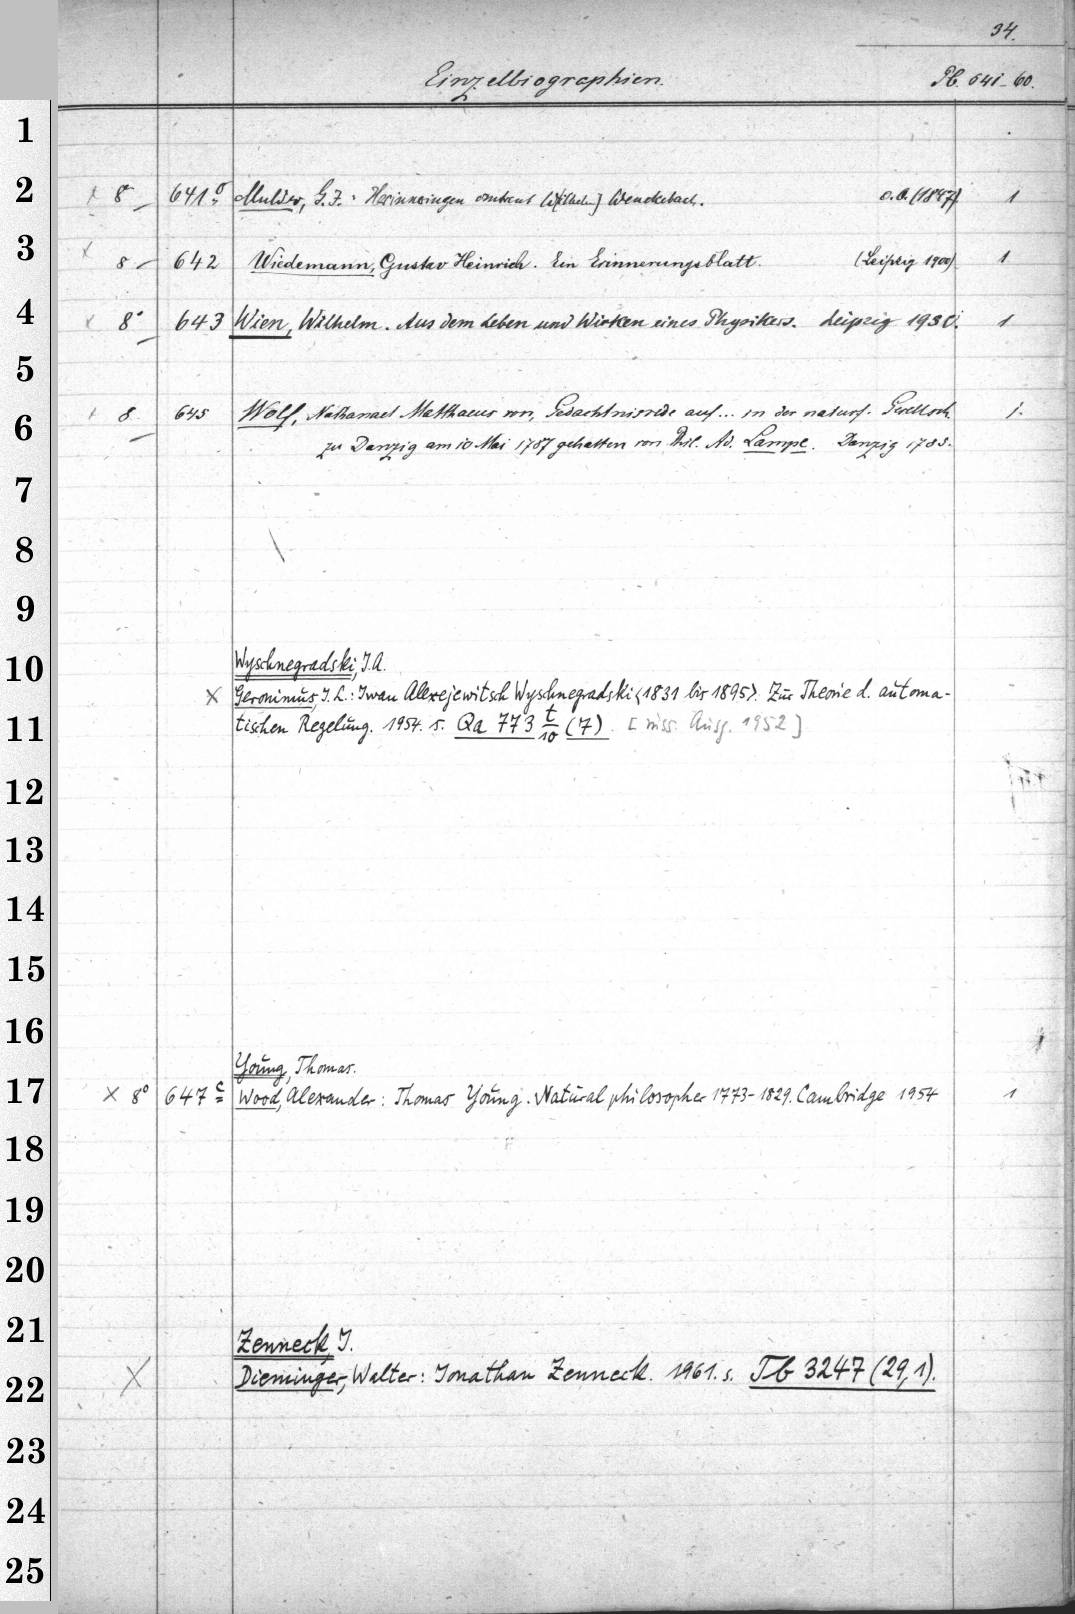 34.
Einzelbiographien. Pb. 641-60.
1
2 × 8° 641 Mulder, G. J.: Herinneringen omtrent W[ilhelm] Wenckebach. o. O. (1847). 1
3 × 8 642 Wiedemann, Gustav Heinrich. Ein Erinnerungsblatt. (Leipzig 1900). 1
4 × 8° 643 Wien, Wilhelm. Aus dem Leben und Wirken eines Physikers. Leipzig 1930. 1
5
6 × 8 645 Wolf, Nathanael Matthaeus von, Gedächtnisrede auf... in der naturf. Gesellsch.
zu Danzig am 10 Mai 1787 gehalten von Phil. Ad. Lampe. Danzig 1785.
7
8
9
10 Wyschnegradski, I. A.
× Geronimus, J. L.: Iwan Alexejewitsch Wyschnegradski <1831 bis 1895>. Zur Theorie d. automa-
11 tischen Regelung. 1954. s. Qa 773 t/10 (7) [russ. Ausg. 1952]
12
13
14
15
16
Young, Thomas.
17 × 8° 647 c Wood, Alexander: Thomas Young. Natural philosopher 1773-1829. Cambridge 1954 1
18
19
20
21 Zenneck, J.
22 × Dieminger, Walter: Jonathan Zenneck. 1961. s. Tb 3247 (29,1).
23
24
25